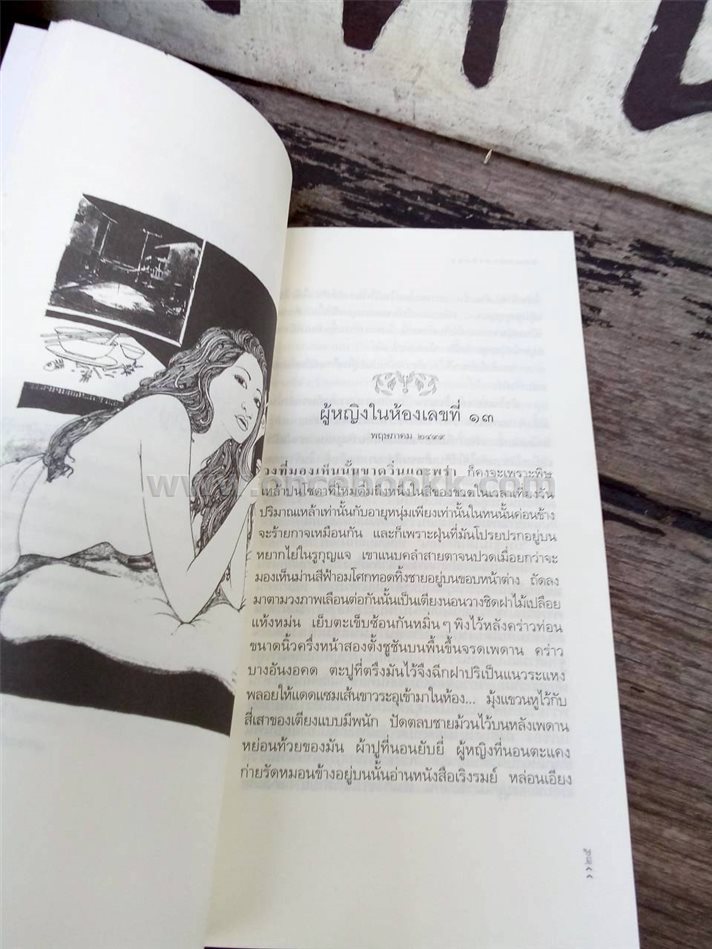 ผู้หญิงในห้องเลขที่ ๑๓
พฤษภาคม ๒๔๙๙
วงที่มองเห็นนั้นขาดวิ่นและพร่า ก็คงจะเพราะพิษ
เหล้าปนโซดาที่ใหม่ดื่มถึงหนึ่งในสี่ของขวดในเวลาเที่ยงวัน
ปริมาณเหล้าเท่านั้นกับอายุหนุ่มเพียงเท่านั้นในทนนั้นค่อนข้าง
จะร้ายกาจเหมือนกัน และก็เพราะฝุ่นที่มันโปรยปรกอยู่บน
หยากไย่ในรูกุญแจ เขาแนบคลำสายตาจนปวดเมื่อยกว่าจะ
มองเห็นม่านสีฟ้าอมโศกทอดทิ้งชายอยู่บนขอบหน้าต่าง ถัดลง
มาตามวงภาพเลือนต่อกันนั้นเป็นเตียงนอนวางชิดฝาไม้เปลือย
แห้งหม่น เย็บตะเข็บซ้อนกันหมิ่น ๆ พิงไว้หลังคร่าวท่อน
ขนาดนิ้วครึ่งหน้าสองตั้งชูชันบนพื้นขึ้นจรดเพดาน คร่าว
บางอันงอคด ตะปูที่ตรึงมันไว้จึงฉีกฝาปริเป็นแนวระแหง
พลอยให้แดดแซมเส้นขาวระอุเข้ามาในห้อง... มุ้งแขวนหูไว้กับ
สี่เสาของเตียงแบบมีพนัก ปัดตลบชายม้วนไว้บนหลังเพดาน
หย่อนท้วยของมัน ผ้าปูที่นอนยับยี่ ผู้หญิงที่นอนตะแคง
ก่ายรัดหมอนข้างอยู่บนนั้นอ่านหนังสือเริงรมย์ หล่อนเอียง
>> ๒๕